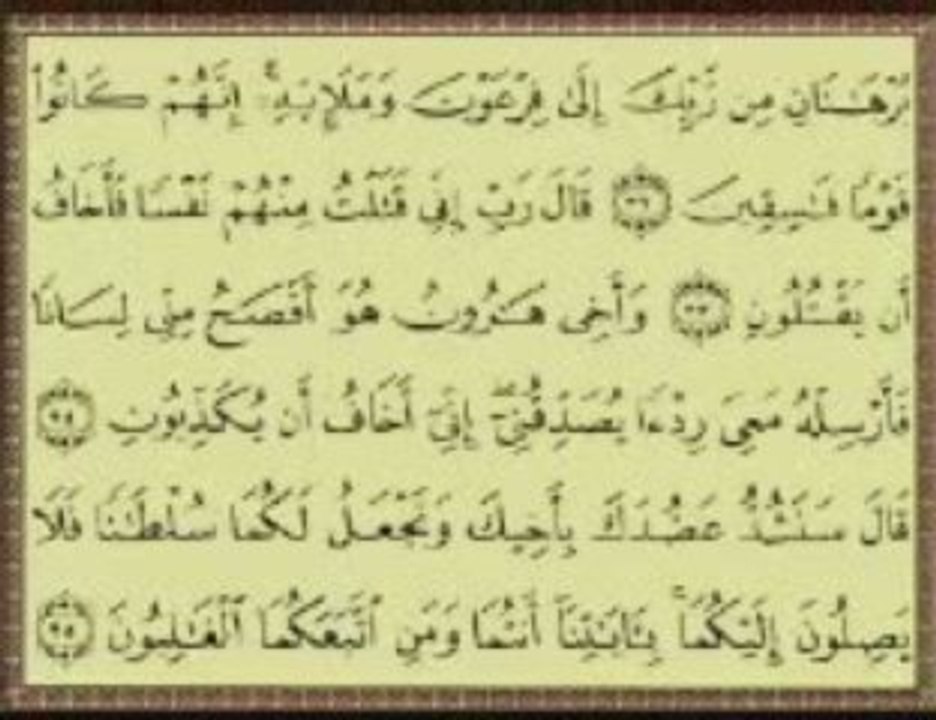 بُرْهَـٰنَانِ مِن رَّبِّكَ إِلَىٰ فِرْعَوْنَ وَمَلَإِيْهِۦٓ ۚ إِنَّهُمْ كَانُوا۟
قَوْمًا فَـٰسِقِينَ ٣٢ قَالَ رَبِّ إِنِّى قَتَلْتُ مِنْهُمْ نَفْسًا فَأَخَافُ
أَن يَقْتُلُونِ ٣٣ وَأَخِى هَـٰرُونُ هُوَ أَفْصَحُ مِنِّى لِسَانًا
فَأَرْسِلْهُ مَعِىَ رِدْءًا يُصَدِّقُنِىٓ ۖ إِنِّىٓ أَخَافُ أَن يُكَذِّبُونِ ٣٤
قَالَ سَنَشُدُّ عَضُدَكَ بِأَخِيكَ وَنَجْعَلُ لَكُمَا سُلْطَـٰنًا فَلَا
يَصِلُونَ إِلَيْكُمَا ۚ بِـَٔايَـٰتِنَآ أَنتُمَا وَمَنِ ٱتَّبَعَكُمَا ٱلْغَـٰلِبُونَ ٣٥